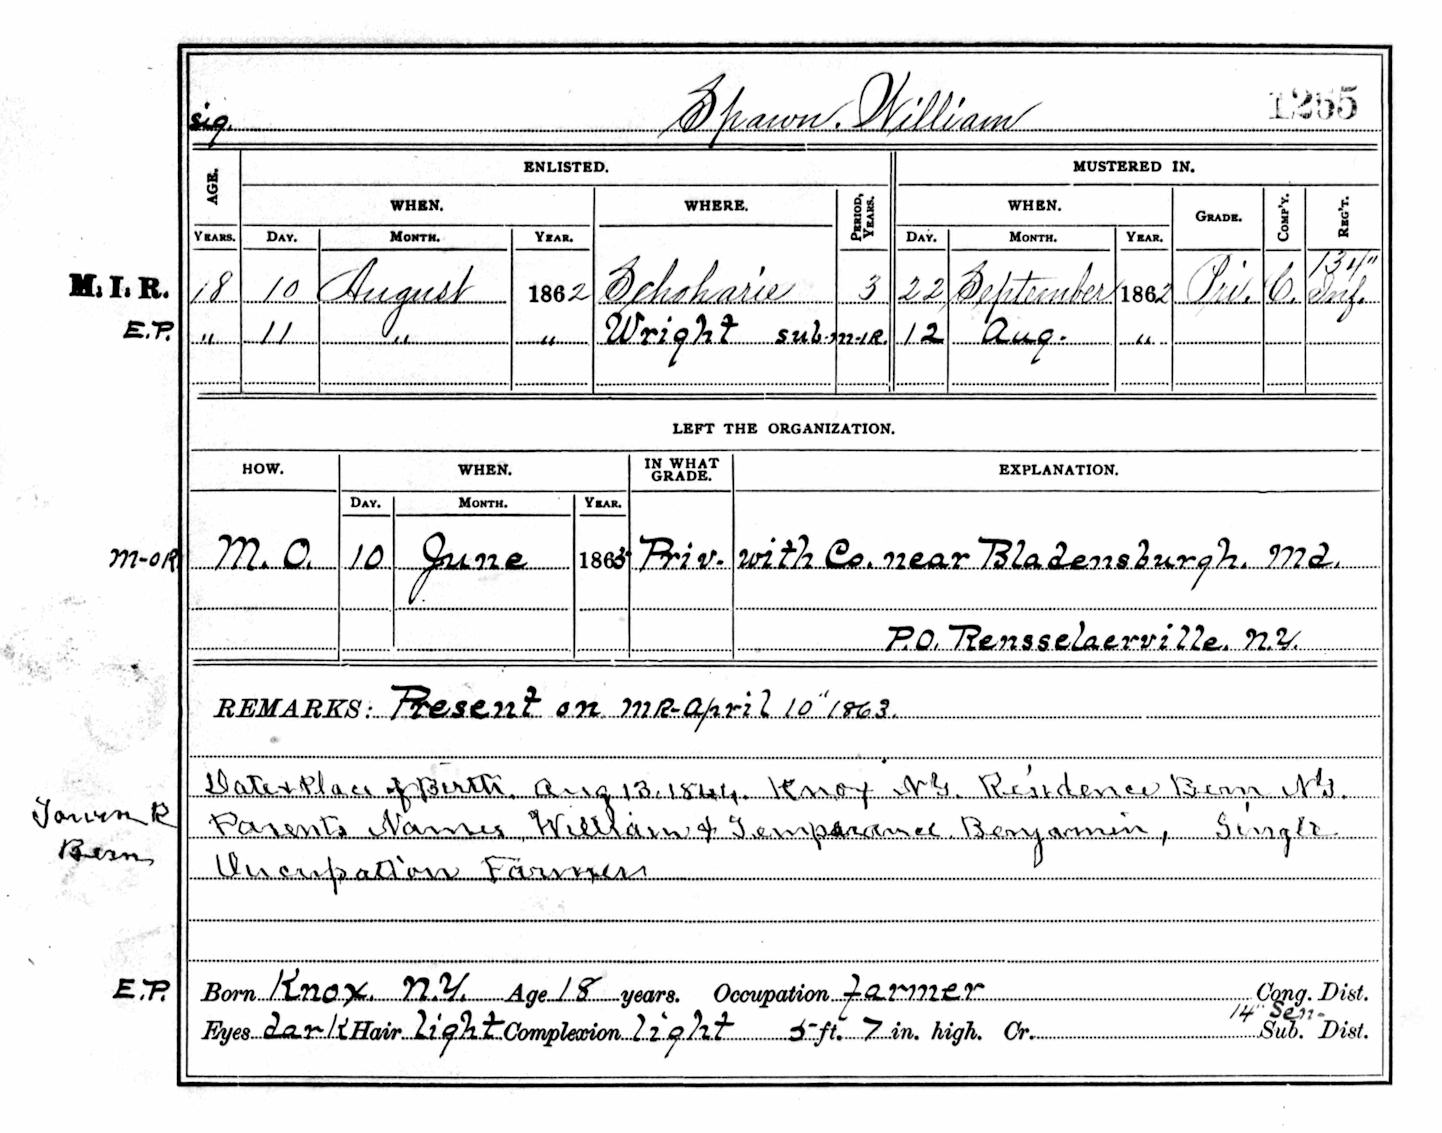 sig. Spawn. William 1255
ENLISTED. MUSTERED IN.
AGE. WHEN. WHERE. PERIOD, YEARS. WHEN. GRADE. COMP'Y. REG'T.
YEARS. DAY. MONTH. YEAR. DAY. MONTH. YEAR.
M. I. R. 18 10 August 1862 Schoharie 3 22 September 1862 Pri. C. 134" Inf.
E.P. " 11 " " Wright sub. M-I R. 12 Aug. "
LEFT THE ORGANIZATION.
HOW. WHEN. IN WHAT GRADE. EXPLANATION.
DAY. MONTH. YEAR.
M-OR M. O. 10 June 1865 Priv. with Co. near Bladensburgh. Md.
P.O. Rensselaerville. N.Y.
REMARKS: Present on MR-April 10" 1863.
Date & Place of Birth. Aug 13. 1844. Knox NY. Residence Bern NY.
Town R Parents Names William & Temperance Benjamin, Single
Bern Occupation Farmer
E.P. Born Knox. N.Y. Age 18 years. Occupation farmer Cong. Dist.
14" Sen-
Eyes dark Hair light Complexion light 5 ft. 7 in. high. Cr. Sub. Dist.